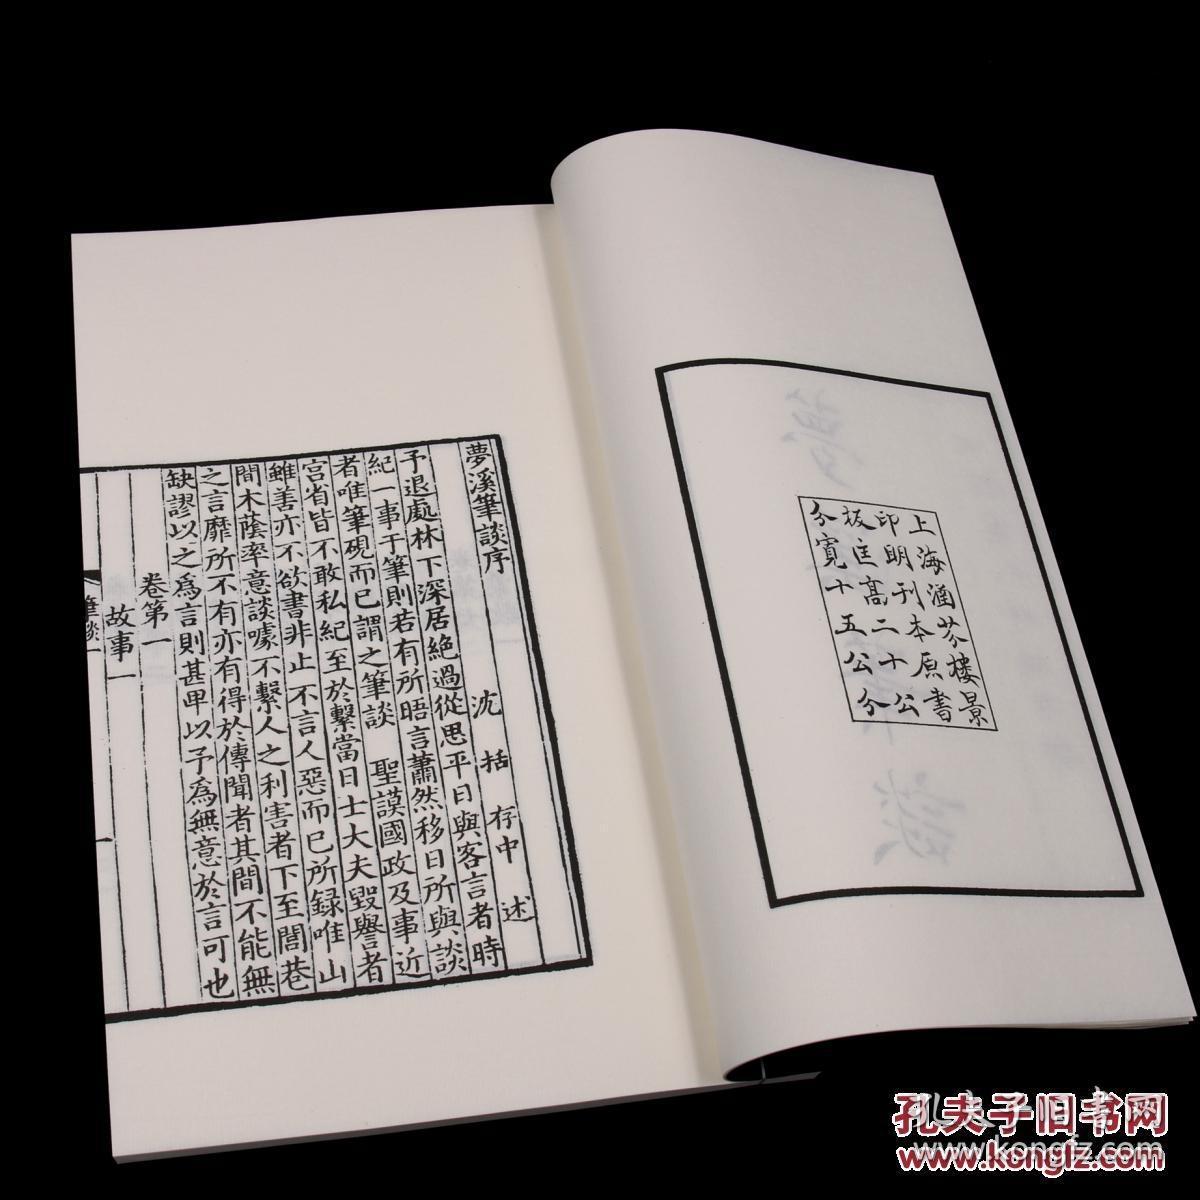 上海涵芬樓景
印明刊本原書
板匡高二十公
分寬十五公分
夢溪筆談序
沈括存中述
予退處林下深居絶過從思平日與客言者時
紀一事于筆則若有所晤言蕭然移日所與談
者唯筆硯而已謂之筆談 聖謨國政及事近
宫省皆不敢私紀至於繫當日士大夫毀譽者
雖善亦不欲書非止不言人惡而已所録唯山
間木蔭率意談噱不繫人之利害者下至閭巷
之言靡所不有亦有得於傳聞者其間不能無
缺謬以之爲言則甚卑以予爲無意於言可也
卷第一
故事一
筆談一
一
孔夫子旧书网
www.kongfz.com